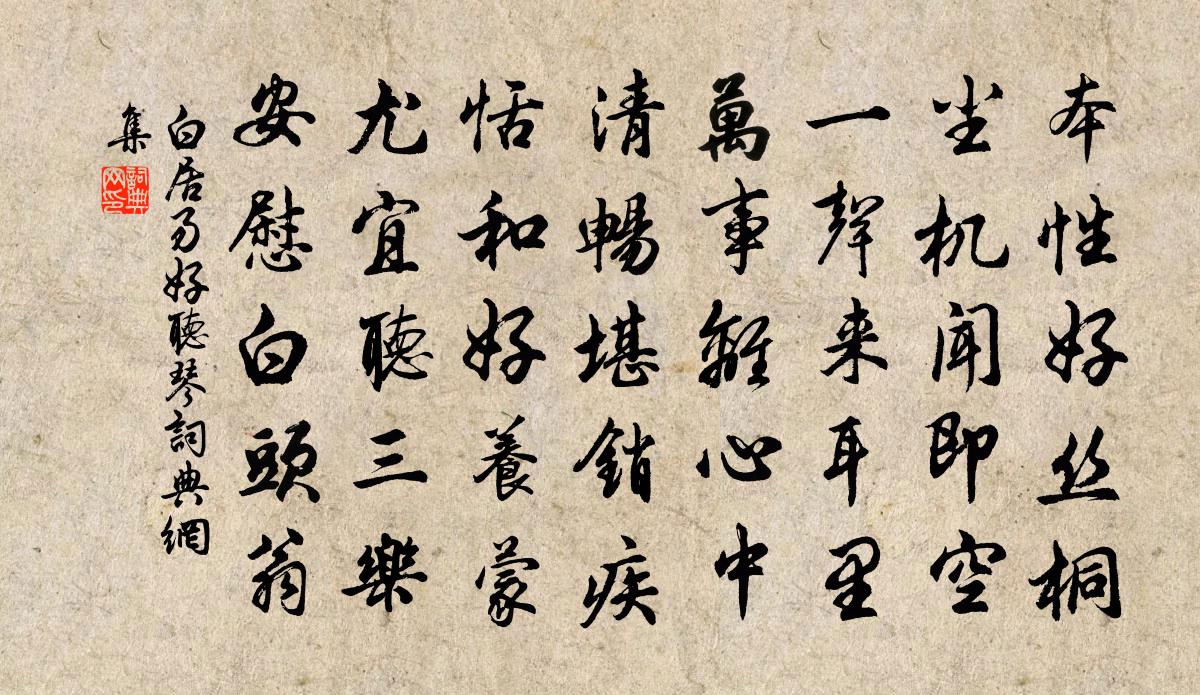 本性好丝桐
尘机闻即空
一聲来耳里
萬事離心中
清暢堪銷疾
恬和好養蒙
尤宜聽三樂
安慰白頭翁
白居易好聽琴詞典網
集
詞典网印